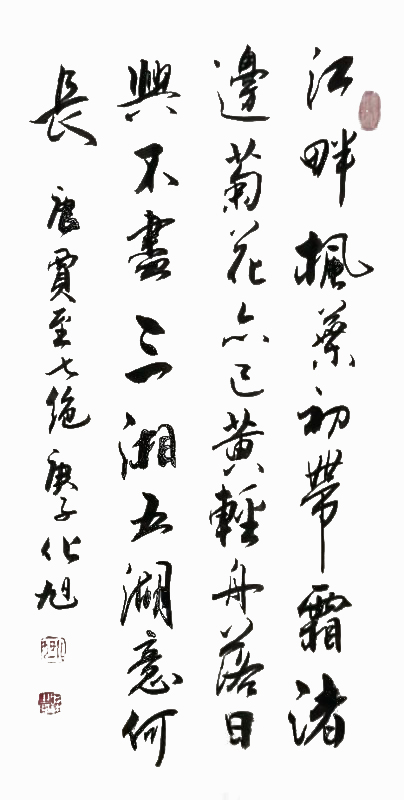 江畔楓葉初帶霜渚
邊菊花亦已黃輕舟落日
興不盡三湘五湖意何
長
唐賈至七絕庚子化旭